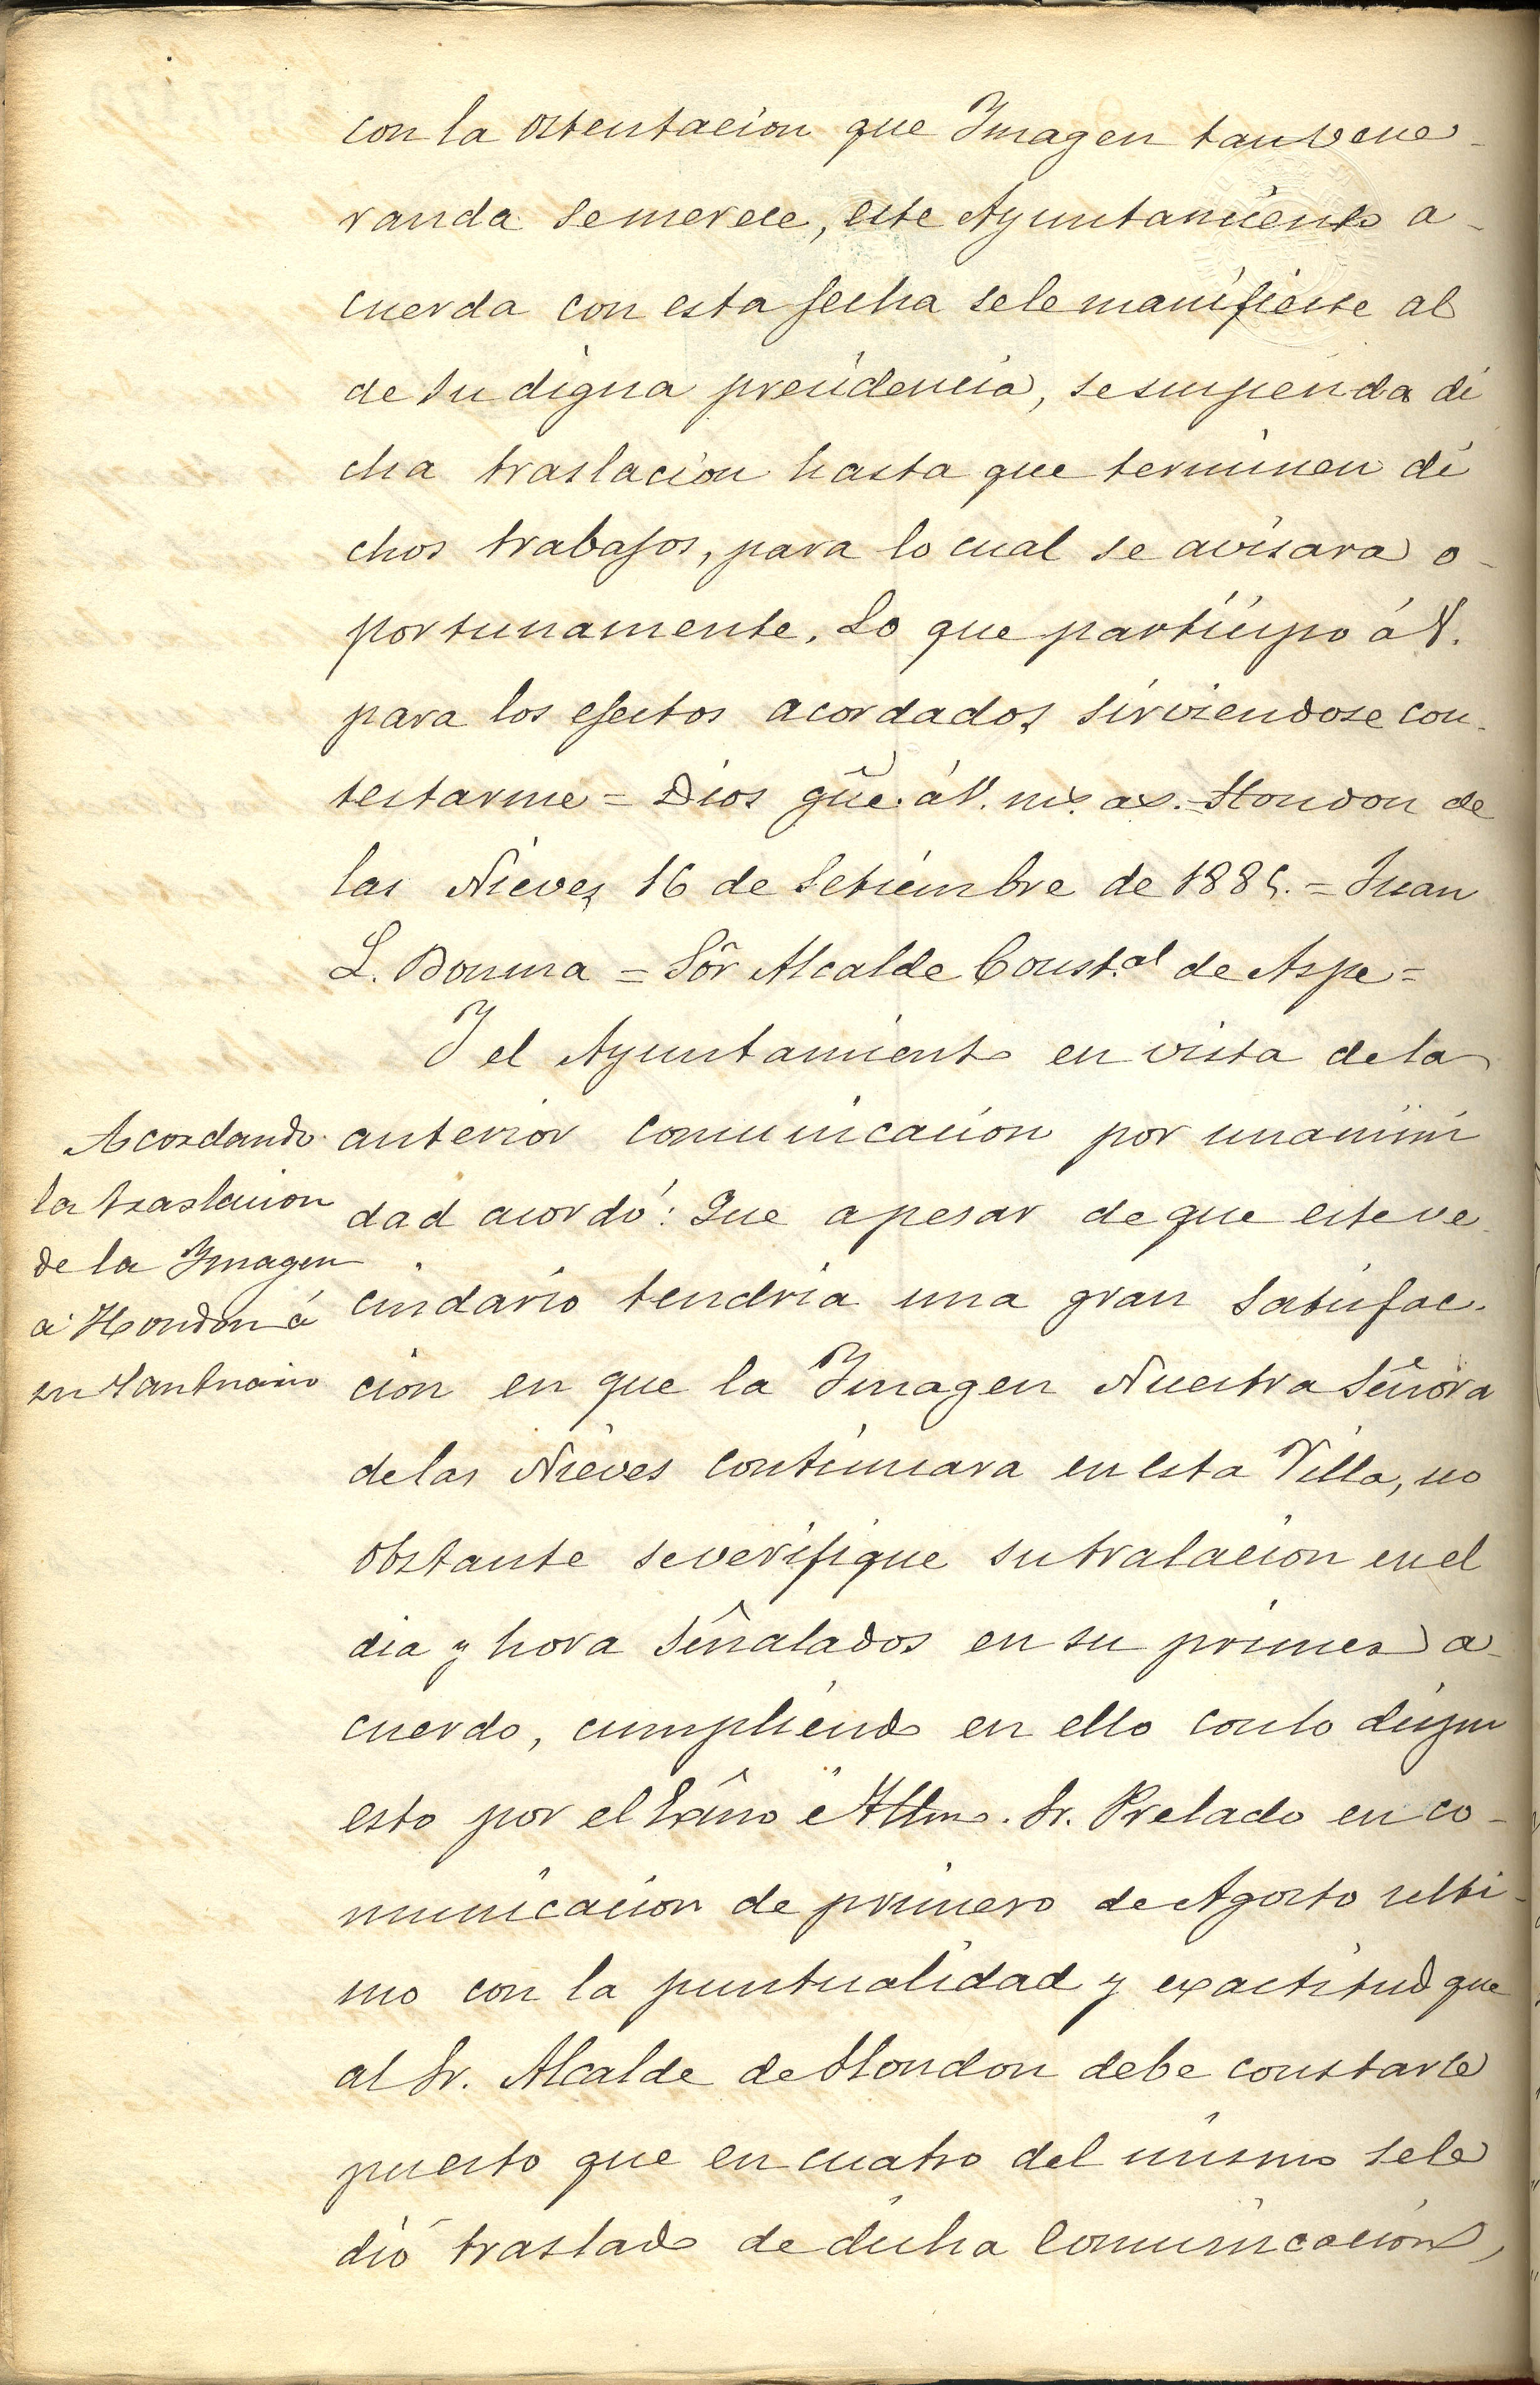 con la ostentacion que Imagen tan vene-
randa se merece, este Ayuntamiento a-
cuerda con esta fecha se le manifieste al
de su digna presidencia, se suspenda di
cha traslacion hasta que terminen di
chos trabajos, para lo cual se avisara o-
portunamente. Lo que participo á V.
para los efectos acordados sirviendose con-
testarme = Dios gûe. á V. ms. as. = Hondon de
las Nieves 16 de Setiembre de 1885. = Juan
L. = Sôr Alcalde Const.al de Aspe =
Y el Ayuntamiento en vista de la
anterior comunicacion por unanimi
dad acordó: Que apesar de que este ve-
cindario tendria una gran satisfac-
cion en que la Imagen Nuestra Señora
de las Nieves continuara en esta Villa, no
obstante se verifique su tralacion en el
dia y hora señalados en su primer a-
cuerdo, cumpliendo en ello con lo dispu
esto por el Exmo é Illmo. Sr. Prelado en co-
municacion de primero de Agosto ulti-
mo con la puntualidad y exactitud que
al Sr. Alcalde de Hondon debe constarle
puesto que en cuatro del mismo se le
dió traslado de dicha comunicacion,
Acordando
la traslacion
de la Imagen
a Hondon á
su Santuario